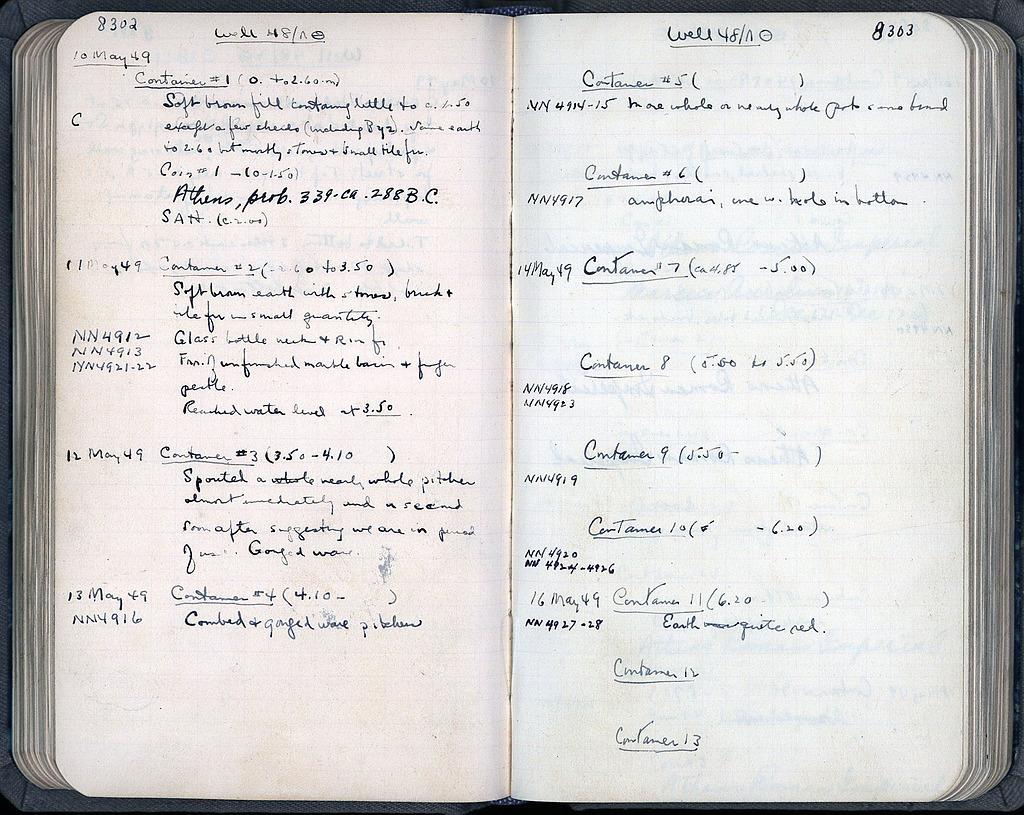 8302
Well 48/ΛΘ
10 May 49
Container #1 (0. to 2.60 m)
Soft brown fill containg little to c. 1.50
C
except a few sherds (including Byz). Same earth
to 2.60 but mostly stones & small tile frr.
Coin #1 - (0-1.50)
Athens, prob. 339-ca. 288 B.C.
SAH. (c. 2.00)
11 May 49 Container #2 (-2.60 to 3.50 )
Soft brown earth with stones, brick &
tile frr in small quantity.
NN4912 Glass bottle neck & Rim fr.
NN4913
NN4921-22 Frr. of unfinished marble basin & finger
pestle.
Reached water level at 3.50.
12 May 49 Container #3 (3.50-4.10 )
Spouted a whole nearly whole pitcher
almost immediately and a second
soon after suggesting we are in period
of use. Gorged ware.
13 May 49 Container #4 (4.10- )
NN4916 Combed & gorged ware pitchers
8303
Well 48/ΛΘ
Container #5 ( )
NN 4914-15 more whole or nearly whole pots same brand
Container #6 ( )
NN4917 amphorai, one w. hole in bottom.
14 May 49 Container #7 (ca 4.85 -5.00)
Container 8 (5.00 to 5.50)
NN4918
NN4923
Container 9 (5.50- )
NN4919
Container 10 ( -6.20)
NN4920
NN 4924-4926
16 May 49 Container 11 (6.20 )
NN 4927-28 Earth quite red.
Container 12
Container 13